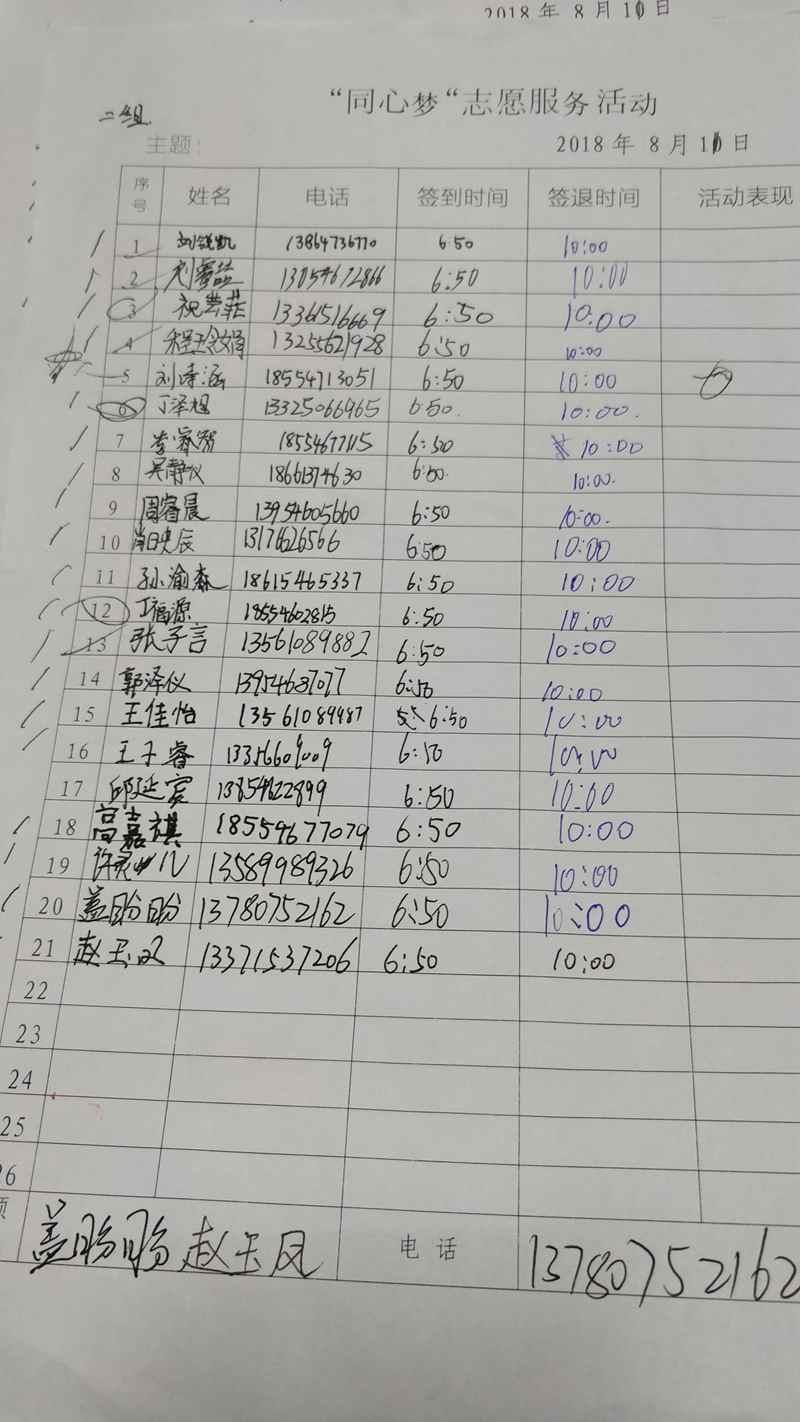 2018 年 8 月 10 日
二组
“同心梦“志愿服务活动
主题:
2018 年 8 月 11 日
序号 姓名 电话 签到时间 签退时间 活动表现
1 凯 13864736770 6:50 10:00
2 刘 13854672866 6:50 10:00
3 祝芸菲 13361516669 6:50 10.00
4 13255621928 6:50 10:00
5 刘诗涵 18554713051 6:50 10:00
6 丁泽旭 13325066965 6:50. 10:00.
7 李睿智 18554677115 6:50 10:00
8 吴静仪 18661374630 6:50. 10:00.
9 周睿晨 13954605660 6:50 10:00.
10 辰 6:50 10:00
11 孙渝森 18615465337 6:50 10:00
12 丁福源 18554602815 6:50 10:00
13 张子言 13561089882 6:50 10:00
14 郭泽仪 13954687077 6:50 10:00
15 王佳怡 13561089987 6:50 10:00
16 王子睿 6:50 10:00
17 邱延宾 13854622899 6:50 10:00
18 高嘉祺 18554677079 6:50 10:00
19 许灵 13589989326 6:50 10:00
20 盖盼盼 13780752162 6:50 10:00
21 赵玉凤 13371537206 6:50 10:00
22
23
24
25
26
盖盼盼 赵玉凤 电话 13780752162